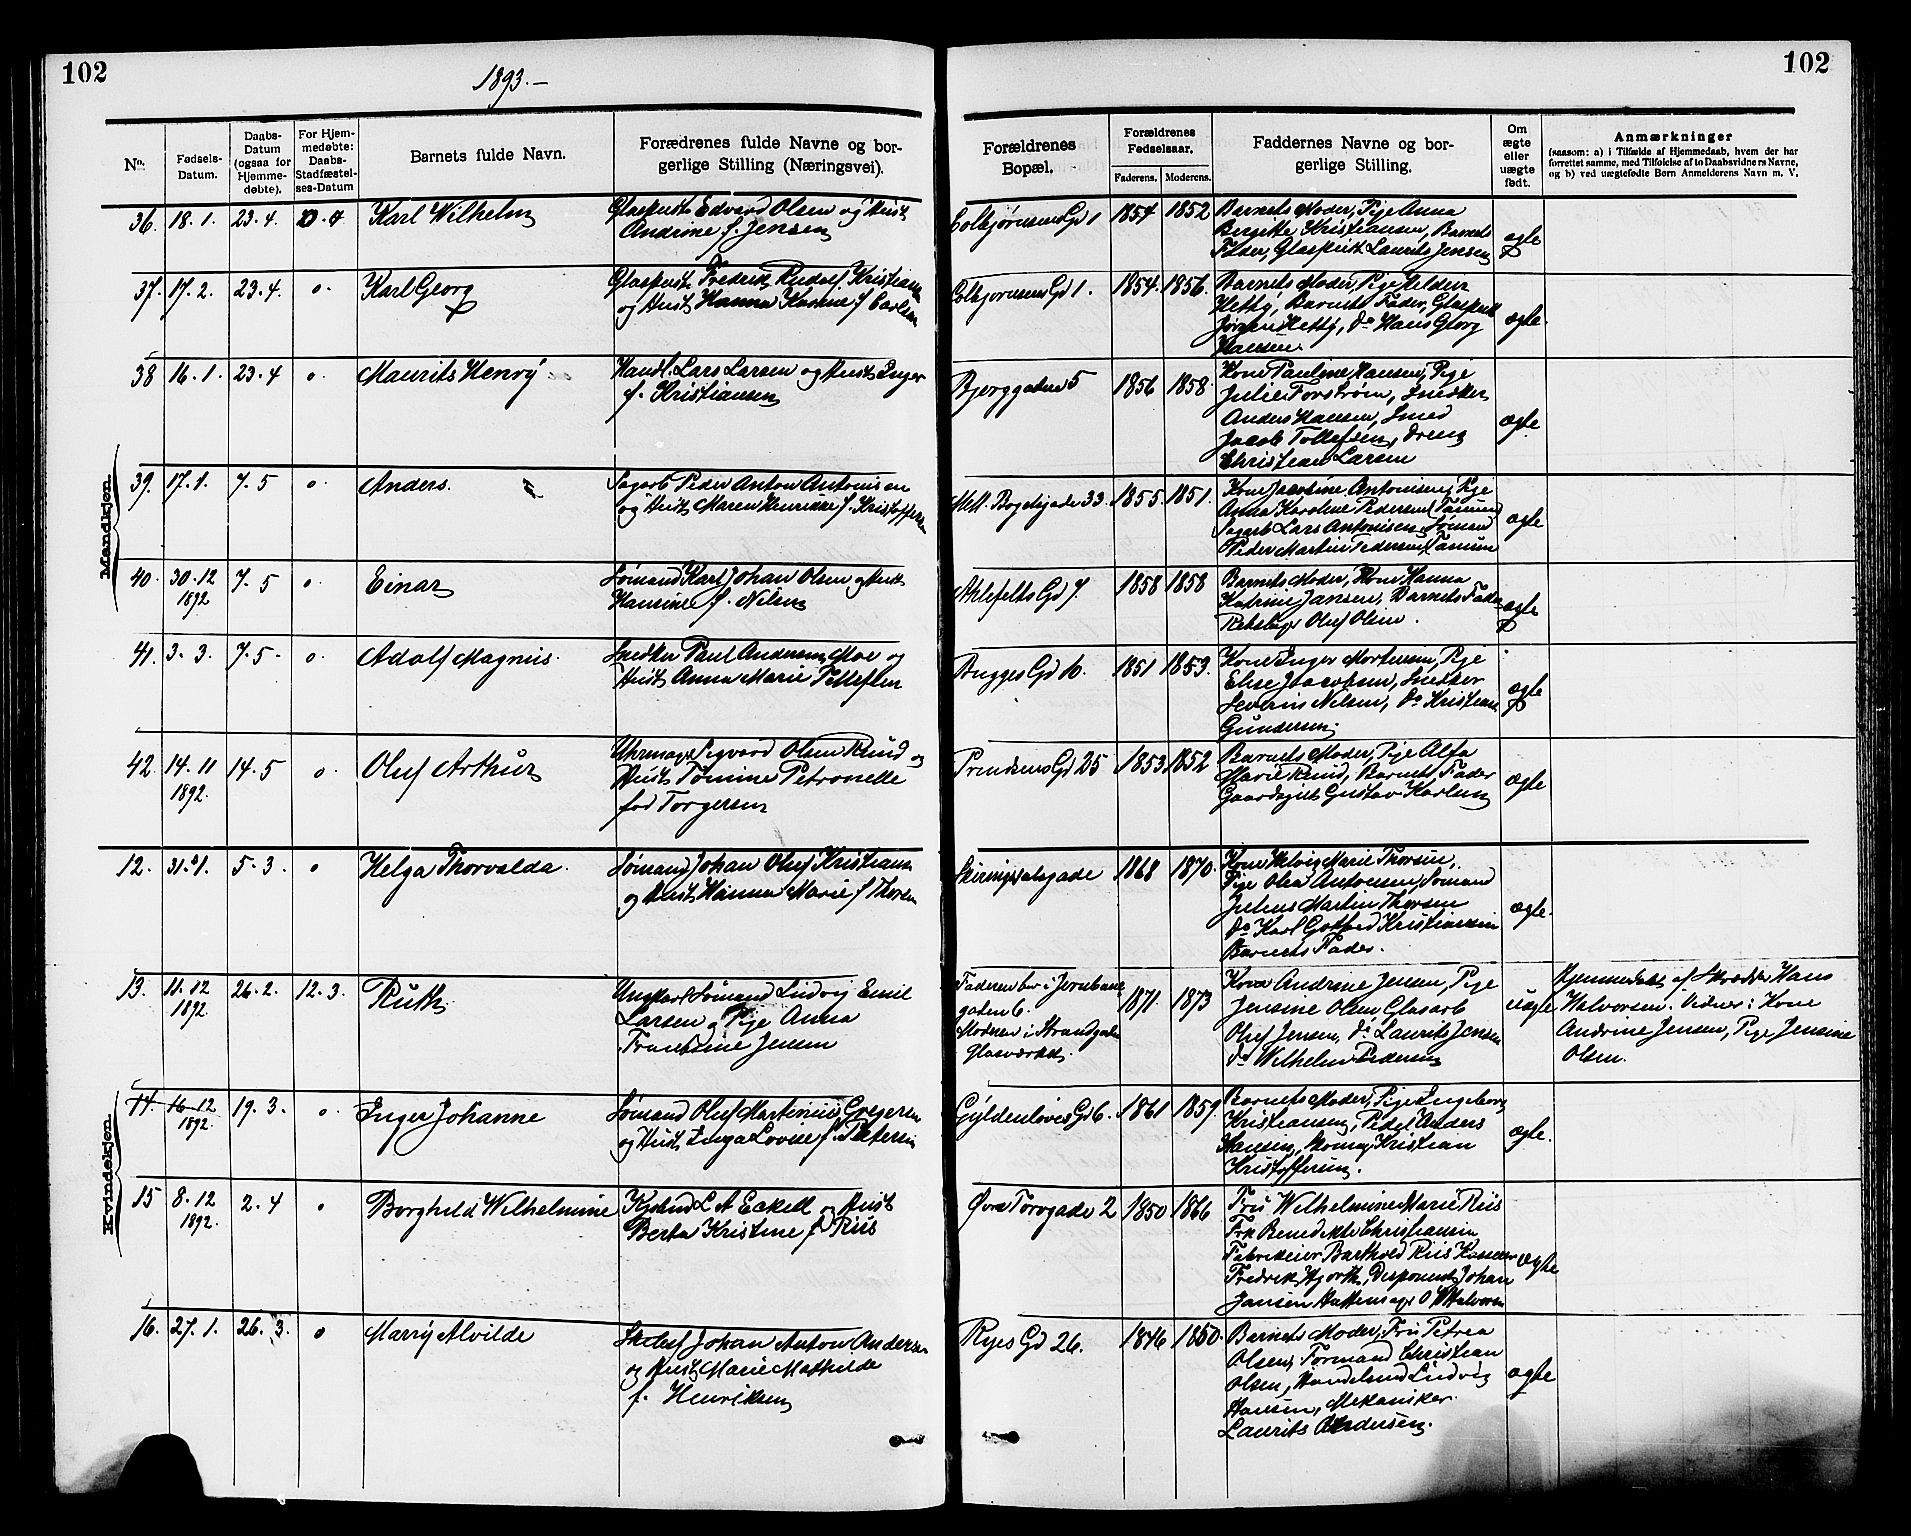 102
1893.-
102
No.
Fødsels-
Datum.
Daabs-
Datum
(ogsaa for
Hjemme-
døbte).
For Hjem-
medøbte:
Daabs-
Stadfæstel-
ses-Datum
Barnets fulde Navn.
Forædrenes fulde Navne og bor-
gerlige Stilling (Næringsvei).
Forældrenes
Bopæl.
Forældrenes
Fødselsaar.
Faderens.
Moderens.
Faddernes Navne og bor-
gerlige Stilling.
Om
ægte
eller
uægte
født.
Anmærkninger
(saasom: a) i Tilfælde af Hjemmedaab, hvem der har
forrettet samme, med Tilføielse af to Daabsvidners Navne,
og b) ved uægtefødte Børn Anmelderens Navn m. V.
Mandkjøn.
36. 18.1. 23.4. Karl Wilhelm Glaspust Edvard Olsen og Hust
Andrine f. Jensen
Colbjørnsens Gd 1 1854 1852 Barnets Moder, Pige Anna
Birgitte Kristiansen, Barnets
Fader, Glaspust Laurits Jensen ægte
37. 17.2. 23.4. o. Karl Georg Glaspust Frederik Rudolf Kristiansen
og Hust Hanna Karine f. Carlsen
Colbjørnsens Gd 1. 1854. 1856. Barnets Moder, Pige
Hetty, Barnets Fader, Glaspust
Jørgen Hetty, Do Hans Georg
Hansen. ægte.
38 16.1. 23.4 o. Maurits Henry Handl. Lars Larsen og Hust Inger
f. Kristiansen
Bjerggaden 5 1856 1858. Kone Pauline Hansen, Pige
Julie Forstrøm, Snedker
Anders Hansen, Smed
Jacob Tollefsen, Dreng
Christian Larsen ægte.
39. 17.1. 7.5 o. Anders. Sagarb Peder Anton Antonisen
og Hust Maren Henrikke f. Kristoffersen
Mell. Bøgelsgade 33. 1855. 1851. Kone Jacobine Antonisen, Pige
Anna Karoline Pedersen (Tanum)
Sagarb Lars Antonisen, Sømand
Peder Martin Pedersen (Tanum ægte
40. 30.12
1892 7.5 o. Einar Sømand Karl Johan Olsen og Hust
Hansine f. Nilsen
Ahlefelts Gd 7 1858 1858 Barnets Moder, Kone Hanna
Katrine Jansen, Barnets Fader
Rebslager Oluf Olsen. ægte
41. 3.3. 7.5. o. Adolf Magnus. Snedker Paul Andersen Moe og
Hust Anna Marie Tollefsen
Bugges Gd 10. 1851 1853. Kone Inger Mortensen, Pige
Elise Jacobsen, Snedker
Severin Nilsen, Do Kristian
Gundersen. ægte
42. 14.11
1892. 14.5 o. Oluf Arthur Uhrmager Sigvard Olsen Ruud og
Hust Tomine Petronelle
fød Torgersen
Prindsens Gd 25 1853. 1852 Barnets Moder, Pige Alfa
Marie Ruud, Barnets Fader
Gaardsgut Gustav Karlsen ægte
Kvindekjøn.
12. 31.1. 5.3. o Helga Thorvalda. Sømand Johan Oluf Kristiansen
og Hust Hanna Marie f Thorsen
Skiringssalsgade 1868 1870. Kone Helvig Marie Thorsen,
Pige Olea Antonsen, Sømand
Julius Martin Thorsen
Do Karl Gotfred Kristiansen
Barnets Fader. ægte.
13. 11.12
1892. 26.2. 12.3. Ruth Ungkarl Sømand Ludvig Emil
Larsen og Pige Anna
Frantsine Jensen
Faderen bor i Jernbane
gaden 6.
Moderen i Strandgaden
Glasværket. 1871. 1873 Kone Andrine Jensen, Pige
Jensine Olsen Glasarb
Oluf Jensen, Do Laurits Jensen
Do Wilhelm Pedersen uægte Hjemmedøbt af Skrædder Hans
Halvorsen. Vidner: Kone
Andrine Jensen, Pige Jensine
Olsen.
14. 16.12
1892. 19.3. o. Inger Johanne Sømand Oluf Martinius Gregersen
og Hust Inga Lovise f. Petersen
Gyldenløves Gd 6. 1861 1859. Barnets Moder, Pige Ingeborg
Kristiansen, Pedel Anders
Hansen, Kristian
Kristoffersen. ægte.
15 8.12
1892. 2.4 o Borghild Wilhelmine Kjøbmd L A Eckell og Hust
Berta Kristine f. Riis
Øvre Torvgade 2 1850 1866 Fru Wilhelmine Marie Riis
Frk Benedikte Christiansen
Fabrikeier Barthold Riis Kasserer
Fredrik Hjorth, Disponent Johan
Jansen Hattemager O H Halvorsen ægte
16. 27.1. 26.3. o Marry Alvilde Johan Anton Andersen
og Hust Marie Mathilde
f. Henriksen
Ryes Gd 26. 1846 1850. Barnets Moder, Fru Petrea
Olsen, Formand Christian
Olsen, Handelsmd Ludvig
Hansen, Mekaniker
Laurits Andersen. ægte